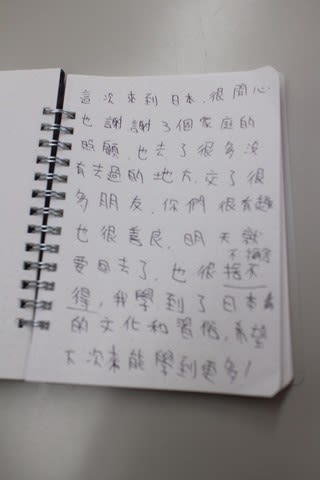 這次來到日本,很開心
也謝謝3個家庭的
照顧,也去了很多沒
有去過的地方,交了很
多朋友,你們很有趣
也很善良,明天就
要回去了,也很捨不
得,我學到了日本
的文化和習俗,希望
下次來能學到更多!